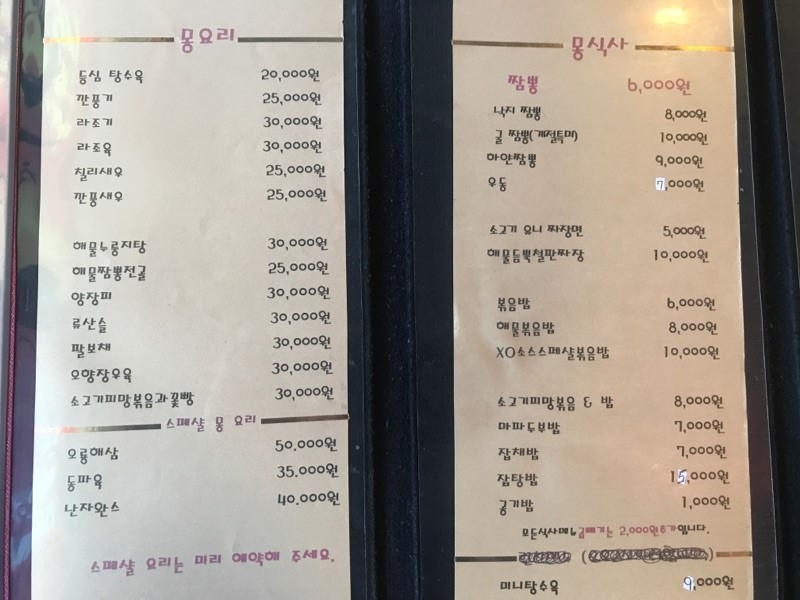 몽요리
등심 탕수육 20,000원
깐풍기 25,000원
라조기 30,000원
라조육 30,000원
칠리새우 25,000원
깐풍새우 25,000원
해물누룽지탕 30,000원
해물짬뽕전골 25,000원
양장피 30,000원
류산슬 30,000원
팔보채 30,000원
오향장우육 30,000원
소고기피망볶음과꽃빵 30,000원
스페샬 몽 요리
오룡해삼 50.000원
동파육 35.000원
난자완스 40.000원
스페샬 요리는 미리 예약해 주세요.
몽식사
짬뽕 6,000원
낙지 짬뽕 8,000원
굴 짬뽕(계절특미) 10,000원
하얀짬뽕 9,000원
우동 7,000원
소고기 요니 짜장면 5,000원
해물듬뿍철판짜장 10,000원
볶음밥 6,000원
해물볶음밥 8,000원
XO소스스페샬볶음밥 10,000원
소고기피망볶음 & 밥 8,000원
마파두부밥 7,000원
잡채밥 7,000원
잡탕밥 15,000원
공기밥 1,000원
모든식사메뉴 곱빼기는 2,000원추가입니다.
미니탕수육 9,000원